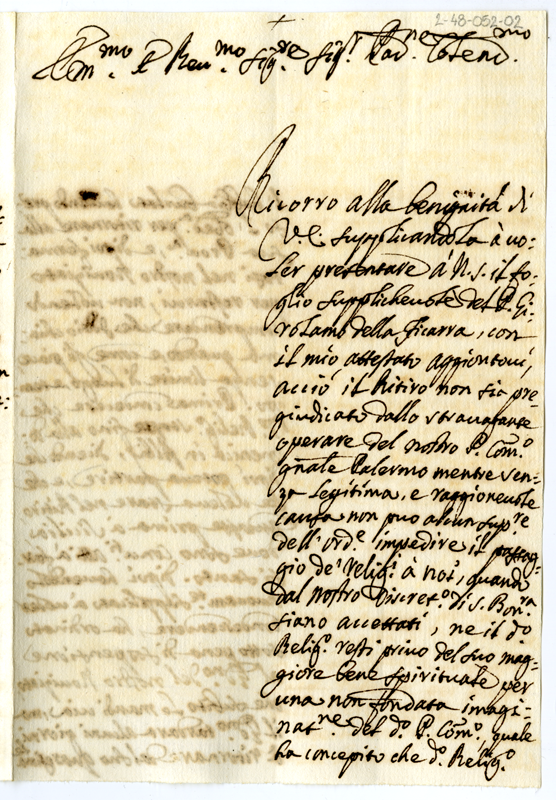 2-48-052-02
Ill.mo e Reu.mo Sig.re Sig.r Pad.ne Colend.mo
Ricorro alla benignità di
V.E. supplicandola à uo-
ler presentare à N.S. il fo-
glio supplicheuole del P. Gi-
rolamo della Ficarra, con
il mio attestato aggiontoui,
acciò il Ritiro non sia pre-
giudicato dallo strauagante
operare del nostro P. Com.o
gn̄ale Palermo mentre sen-
za legitima, e raggioneuole
causa non può alcun sup.re
dell'ord.e impedire il passag-
gio de' relig.i à noi, quando
dal nostro Discret.o di S. Bon.ra
siano accettati, ne il d.o
Relig.o resti priuo del suo mag-
giore bene spirituale per
una non fondata imagi-
nat.ne del d.o P. Com.o quale
ha concepito che d.o Relig.o